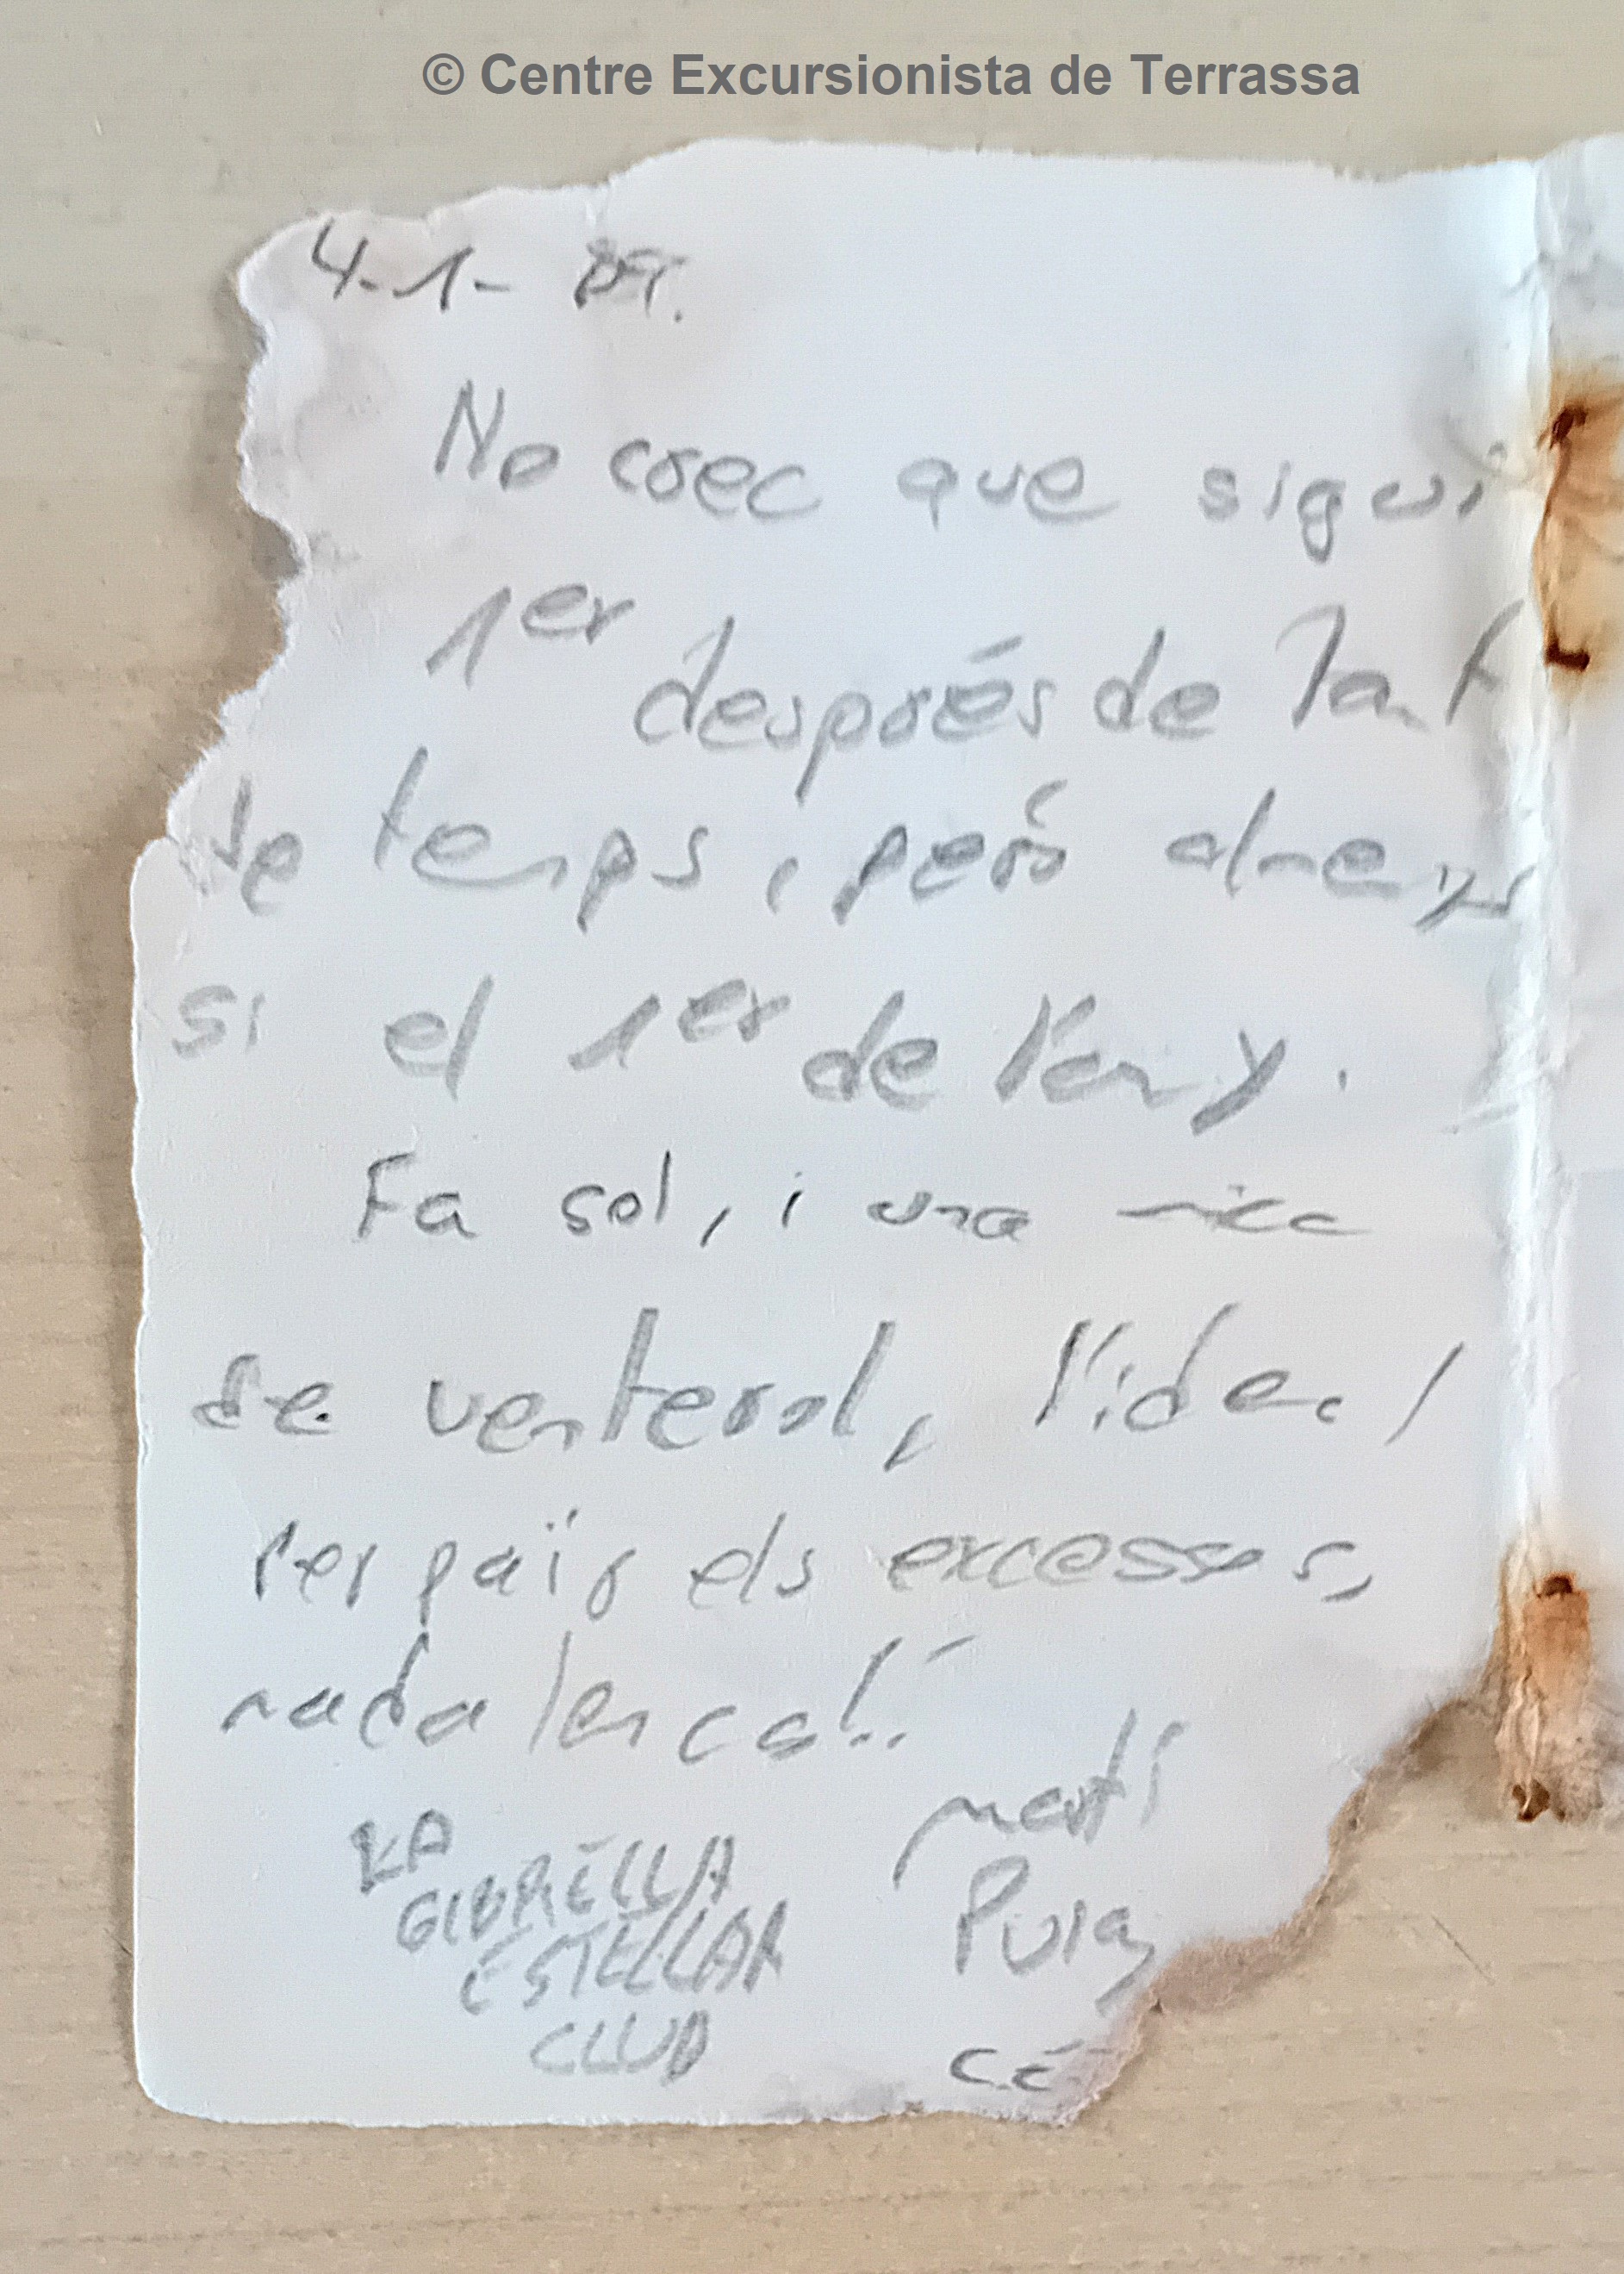 © Centre Excursionista de Terrassa
4-1-
No crec que sigui
1er després de tant
de temps, però almenys
si el 1er de l'any.
Fa sol, i una mica
de ventorol, l'ideal
per païr els excessos,
nadalencs!!
Martí
Puig
LA
GIBRELLA
ESTELLAR
CLUB
CE